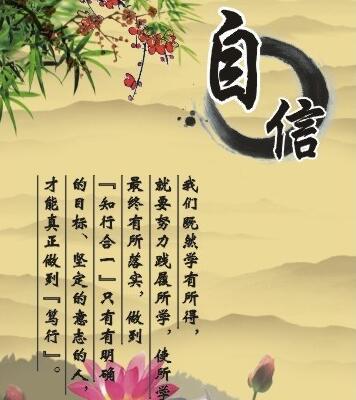 自信
我们既然学有所得，
就要努力践履所学，使所学
最终有所落实，做到
『知行合一』只有有明确
的目标、坚定的意志的人，
才能真正做到『笃行』。